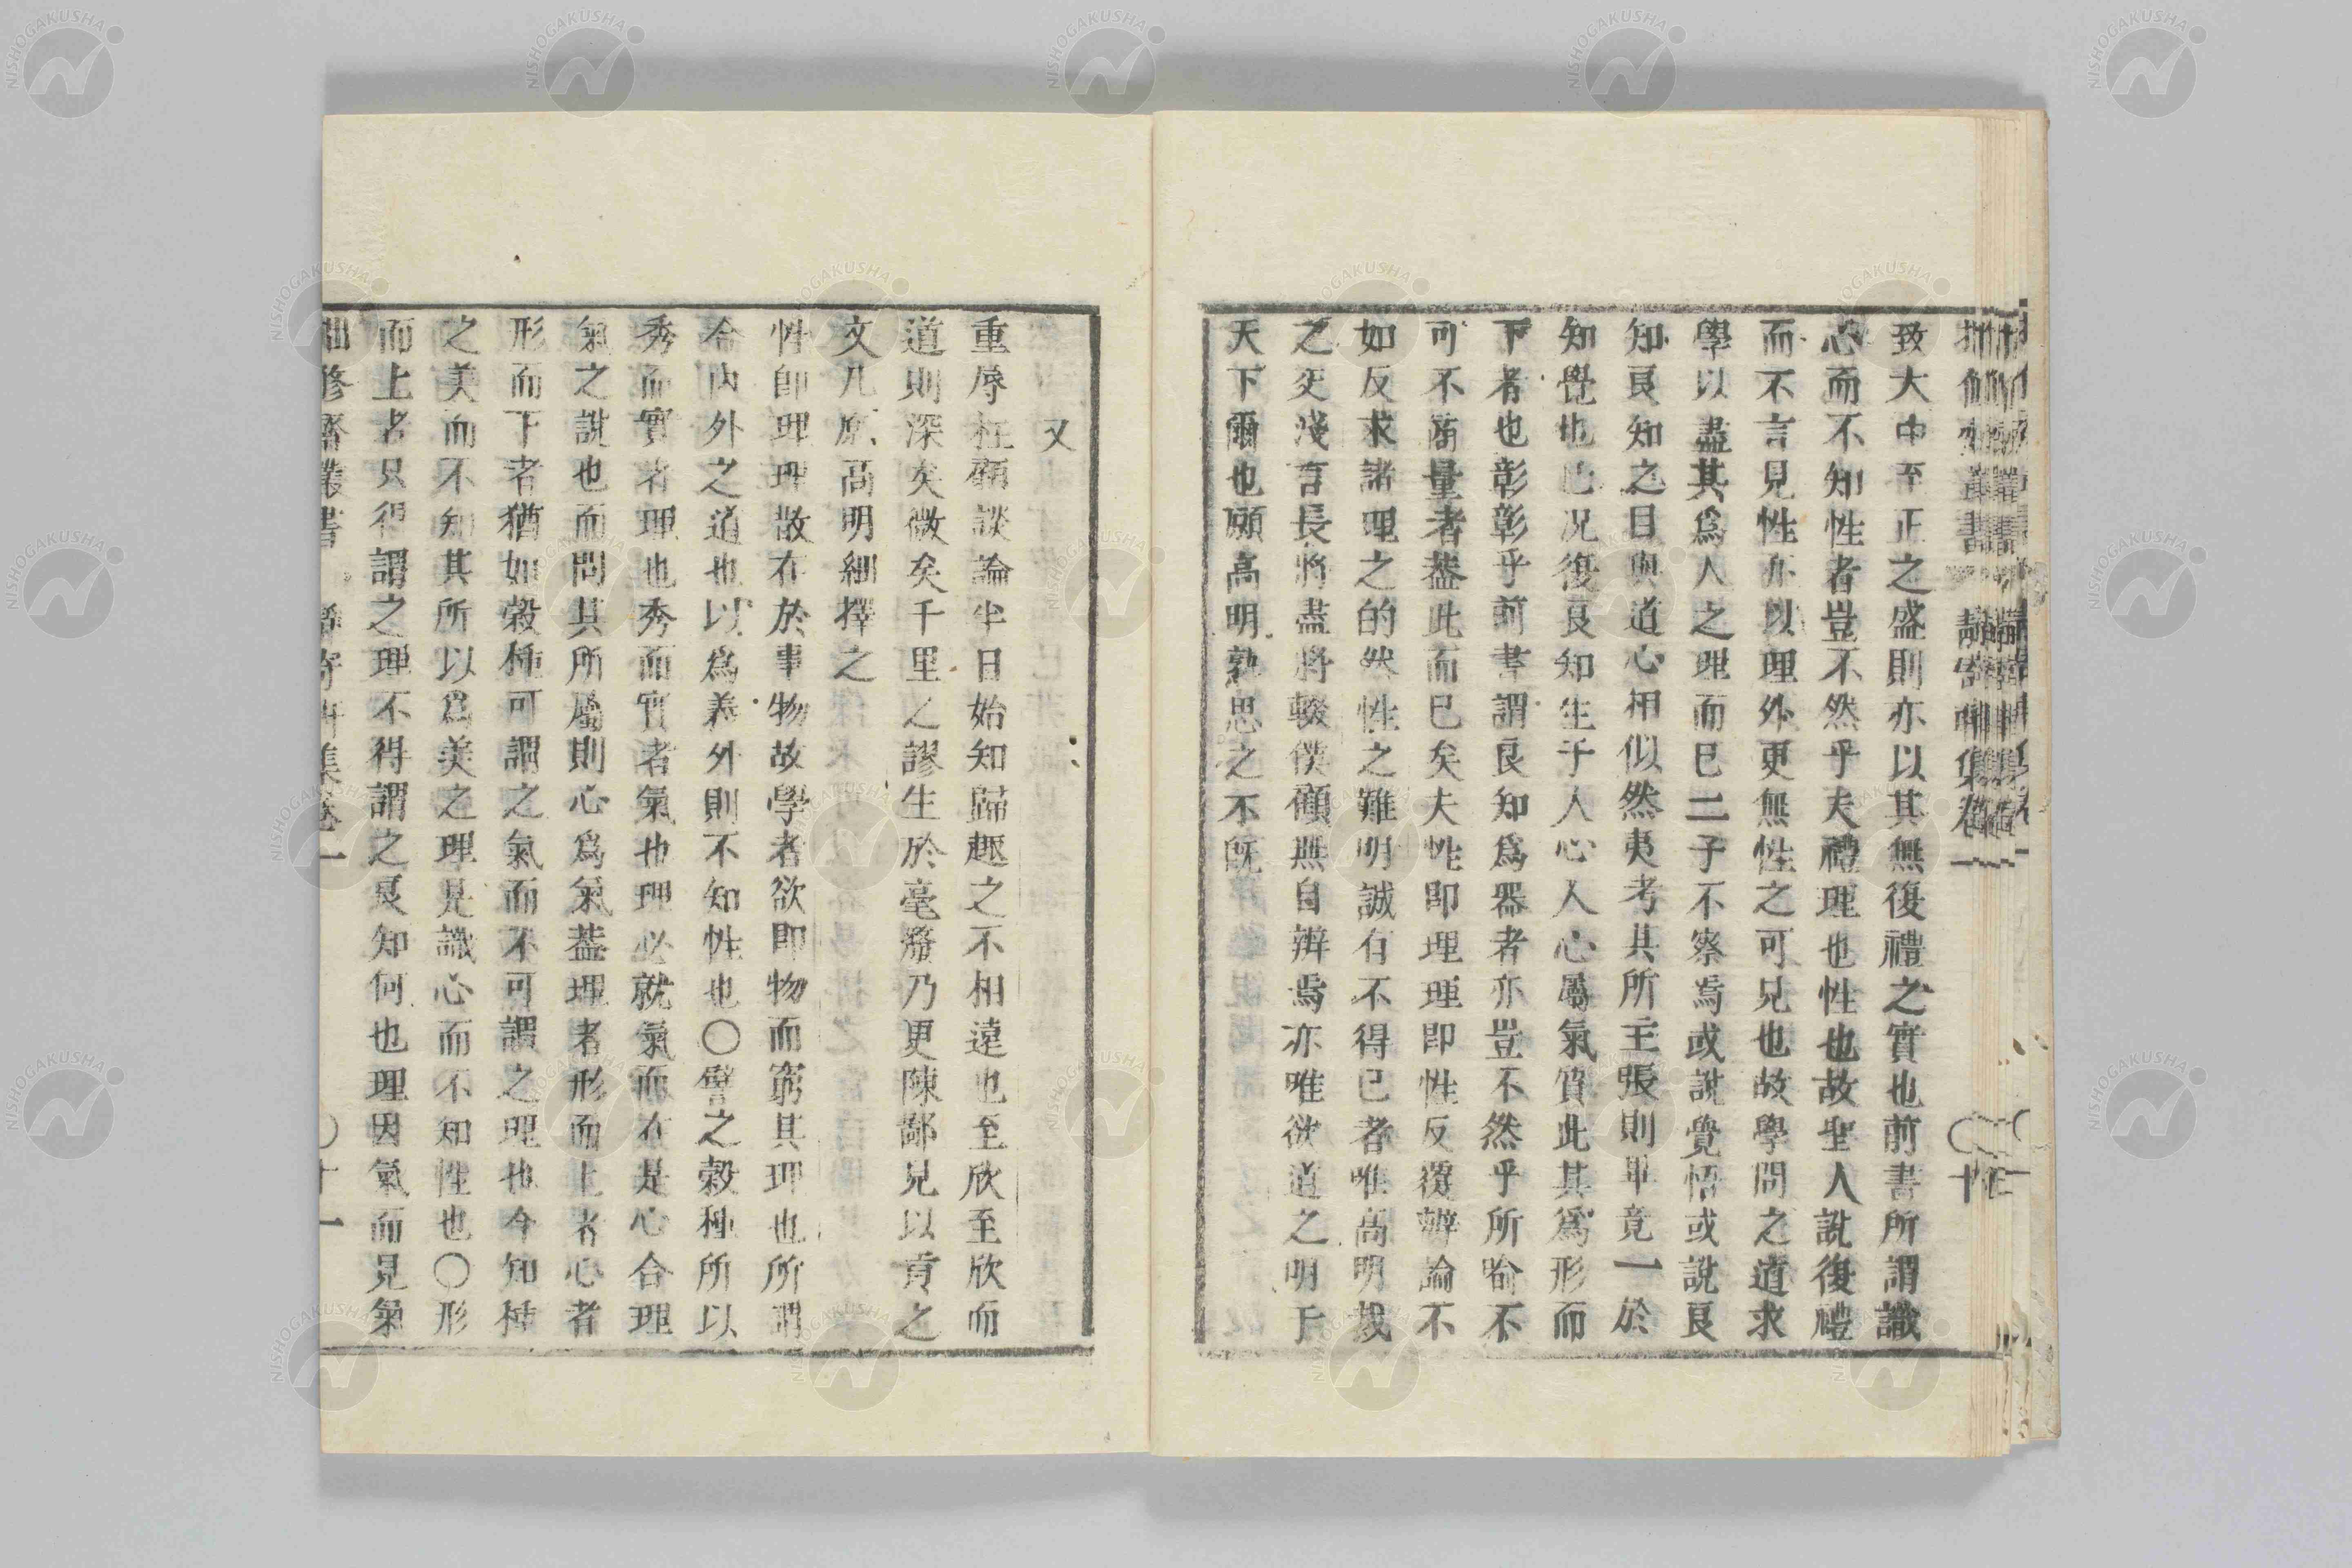 致大中至正之盛則亦以其無復禮之實也前書所謂識
心而不知性者豈不然乎夫禮理也性也故聖人説復禮
而不言見性亦以理外更無性之可見也故學問之道求
學以盡其爲人之理而已二子不察焉或説覺悟或説良
知良知之目與道心相似然夷考其所主張則畢竟一於
知覺也已况復良知生于人心人心屬氣質此其爲形而
下者也彰彰乎前書謂良知爲器者亦豈不然乎所喻不
可不商量者葢此而已矣夫性即理理即性反覆辨論不
如反求諸理之的然性之難明誠有不得已者唯高明裁
之交淺言長將盡將輟僕顧無自辨焉亦唯欲道之明于
天下爾也願高明熟思之不既
又
重辱枉顧談論半日始知歸趣之不相遠也至欣至欣而
道則深矣微矣千里之謬生於毫釐乃更陳鄙見以貢之
文几庶高明細擇之
性即理理散在於事物故學者欲即物而窮其理也所謂
合内外之道也以爲義外則不知性也〇譬之穀種所以
秀而實者理也秀而實者氣也理必就氣而在是心合理
氣之説也而問其所屬則心爲氣葢理者形而上者心者
形而下者猶如穀種可謂之氣而不可謂之理也今知種
之美而不知其所以爲美之理是識心而不知性也〇形
而上者只得謂之理不得謂之良知何也理因氣而見氣
知修齋叢書
集卷一
〇十一